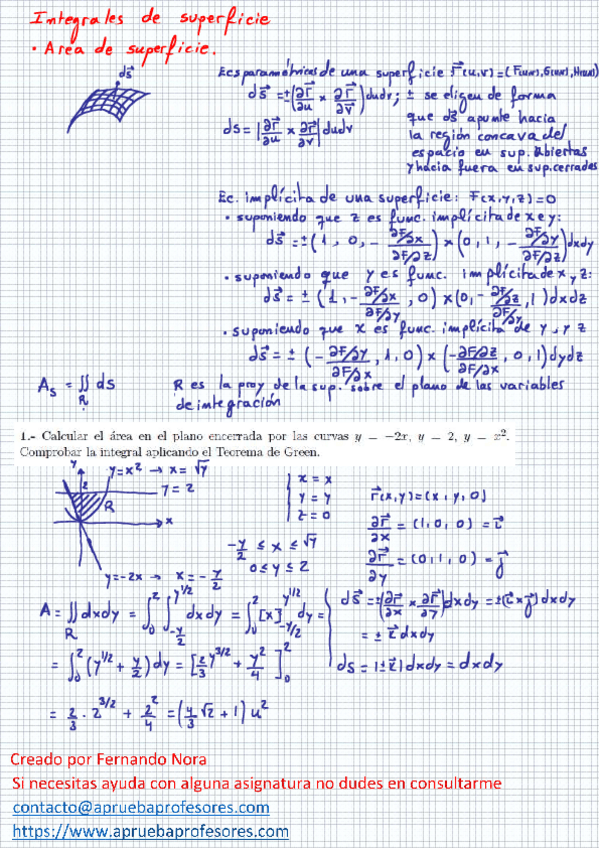 Integrales de superficie
• Area de superficie.
dS⃗
Ecs paramétricas de una superficie r⃗(u,v)=(F(u,v),G(u,v),H(u,v))
dS⃗ = ±(∂r⃗/∂u × ∂r⃗/∂v)dudv; ± se eligen de forma
que dS⃗ apunte hacia
dS = |∂r⃗/∂u × ∂r⃗/∂v| dudv
la región concava del
espacio en sup. abiertas
y hacia fuera en sup. cerrades
Ec. implícita de una superficie: F(x,y,z)=0
• suponiendo que z es func. implícita de x e y:
dS⃗ = ±(1, 0, - ∂F/∂x / ∂F/∂z) × (0, 1, - ∂F/∂y / ∂F/∂z) dxdy
• suponiendo que y es func. implícita de x, z:
dS⃗ = ± (1, - ∂F/∂x / ∂F/∂y, 0) × (0, - ∂F/∂z / ∂F/∂y, 1) dxdz
• suponiendo que x es func. implícita de y, y z
dS⃗ = ± (- ∂F/∂y / ∂F/∂x, 1, 0) × (- ∂F/∂z / ∂F/∂x, 0, 1) dydz
A_S = ∬_R dS R es la proy de la sup. sobre el plano de las variables
de integración
1.- Calcular el área en el plano encerrada por las curvas y = −2x, y = 2, y = x².
Comprobar la integral aplicando el Teorema de Green.
y
y=x² → x = √y
2
y = 2
R
x
y=-2x → x = - y/2
x = x
y = y
z = 0
-y/2 ≤ x ≤ √y
0 ≤ y ≤ 2
r⃗(x,y)=(x, y, 0)
∂r⃗/∂x = (1, 0, 0) = i⃗
∂r⃗/∂y = (0, 1, 0) = j⃗
A = ∬_R dxdy = ∫_0^2 ∫_{-y/2}^{y^{1/2}} dxdy = ∫_0^2 [x]_{-y/2}^{y^{1/2}} dy =
= ∫_0^2 (y^{1/2} + y/2) dy = [2/3 y^{3/2} + y²/4]_0^2
= 2/3 · 2^{3/2} + 2²/4 = (4/3 √2 + 1) u²
dS⃗ = ±(∂r⃗/∂x × ∂r⃗/∂y) dxdy = ±(i⃗ × j⃗) dxdy
= ± i⃗ dxdy
dS = |± i⃗| dxdy = dxdy
Creado por Fernando Nora
Si necesitas ayuda con alguna asignatura no dudes en consultarme
contacto@apruebaprofesores.com
https://www.apruebaprofesores.com